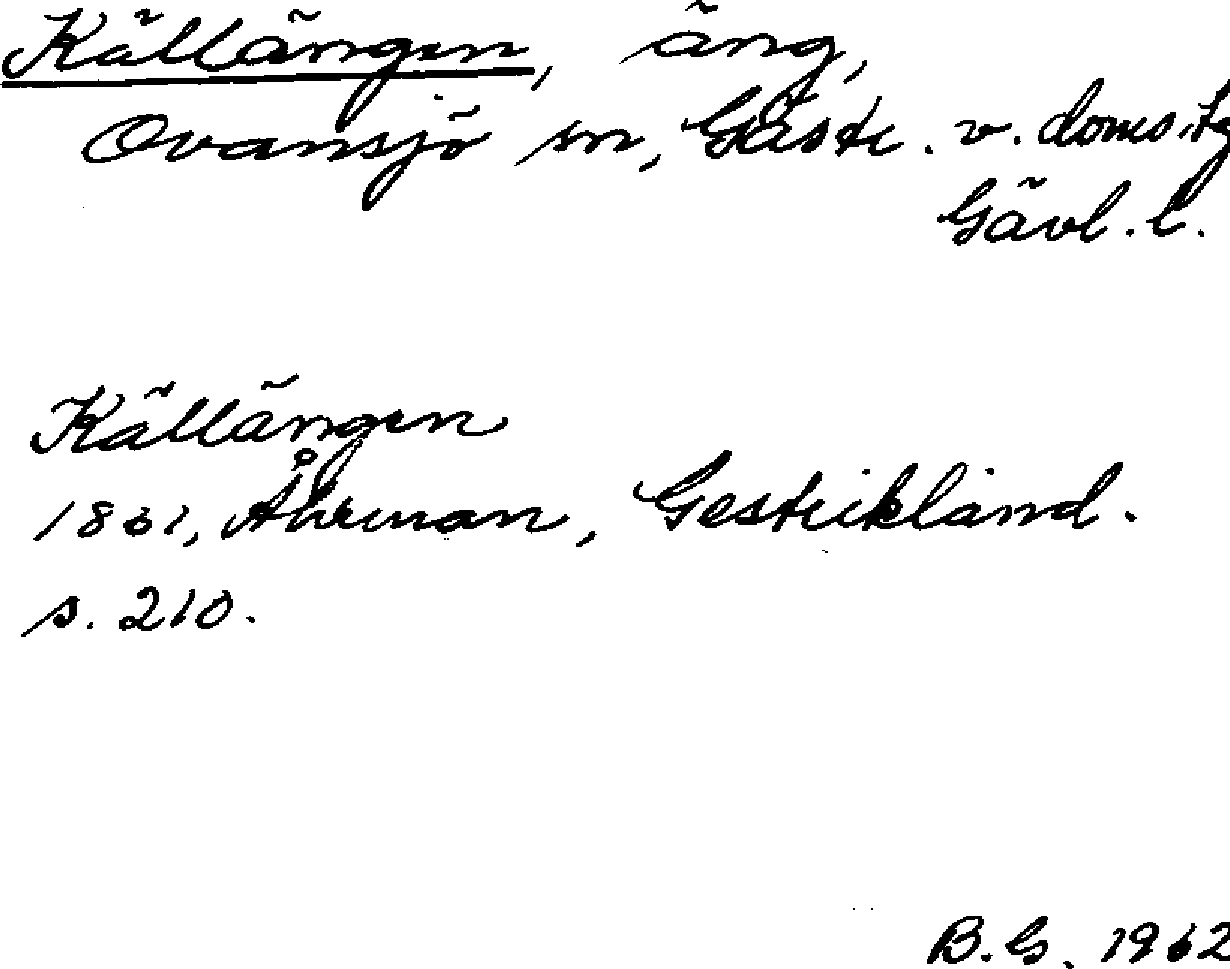 Källängen, äng,
Ovansjö sn, Gästr. v. doms.tg
Gävl. l.
Källängen
1861, Åhrman, Gestrikland.
s. 210.
B.G. 1962